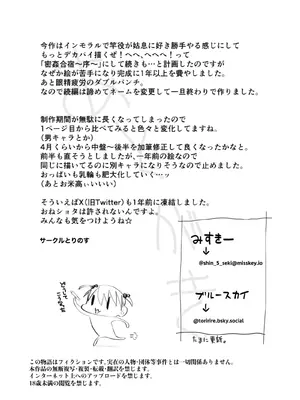 今作はインモラルで竿役が姑息に好き勝手やる感じにして
もっとデカパイ描くぜ！へへ、へへへ！って
「密姦合宿～序～」にして続きも…と計画したのですが
なぜか絵が苦手になり完成に1年以上を費やしました。
あと眼精疲労のダブルパンチ。
なので続編は諦めてネームを変更して一旦終わりで作りました。
制作期間が無駄に長くなってしまったので
1ページ目から比べてみると色々と変化してますね。
（男キャラとか）
4月くらいから中盤～後半を加筆修正して良くなったかなと。
前半も直そうとしましたが、一年前の絵なので
同じに描いてるのに別キャラになりそうなので止めました。
おっぱいも乳輪も肥大化していく…ッ
（あとお米高ぃぃいい）
そういえばX（旧Twitter）も1年前に凍結しました。
おねショタは許されないんですよ。
みんなも気をつけようね☆
サークルとりのす
みすきー
↓
@shin_5_seki@misskey.io
ブルースカイ
↓
@toririre.bsky.social
たまに更新。
この物語はフィクションです。実在の人物・団体等事件とは一切関係ありません。
本作品の無断複写・複製・転載・翻訳を禁じます。
インターネット上へのアップロードを禁じます。
18歳未満の閲覧を禁じます。